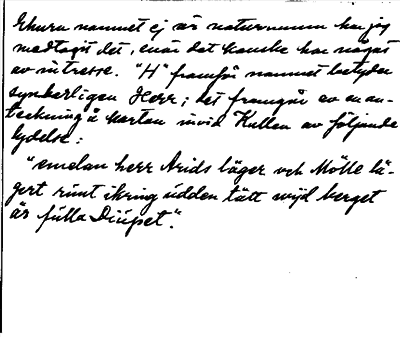 Ehuru namnet ej är naturnamn har jag
medtagit det, enär det kanske har något
av intresse. "H" framför namnet betyder
synbarligen Herr; det framgår av en an-
teckning å kartan invid Kullen av följande
lydelse:
"emelan herr Arids läger och Mölle lä-
gert rünt ikring üdden tätt wijd berget
är fülla Diüpet".